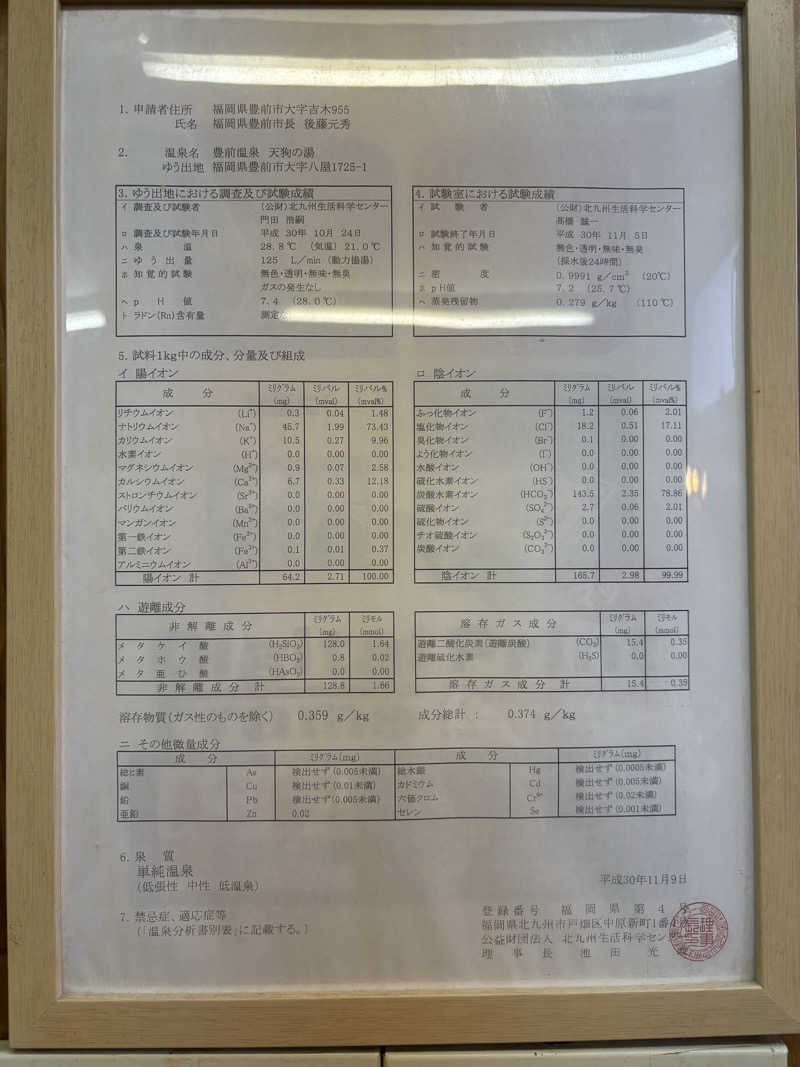 1. 申請者住所 福岡県豊前市大字吉木955
氏名 福岡県豊前市長 後藤元秀
2. 温泉名 豊前温泉 天狗の湯
ゆう出地 福岡県豊前市大字八屋1725-1
3. ゆう出地における調査及び試験成績
イ 調査及び試験者 (公財)北九州生活科学センター
門田 浩嗣
ロ 調査及び試験年月日 平成 30年 10月 24日
ハ 泉 温 28.8℃ (気温) 21.0℃
ニ ゆう出量 125 L/min (動力揚湯)
ホ 知覚的試験 無色・透明・無味・無臭
ガスの発生なし
ヘ pH値 7.4 (28.0℃)
ト ラドン(Rn)含有量 測定
4. 試験室における試験成績
イ 試験者 (公財)北九州生活科学センター
髙橋 誠一
ロ 試験終了年月日 平成 30年 11月 5日
ハ 知覚的試験 無色・透明・無味・無臭
(採水後24時間)
ニ 密度 0.9991 g/cm³ (20℃)
ホ pH値 7.2 (25.7℃)
ヘ 蒸発残留物 0.279 g/kg (110℃)
5. 試料1kg中の成分、分量及び組成
イ 陽イオン
成分 ミリグラム(mg) ミリバル(mval) ミリバル%(mval%)
リチウムイオン (Li⁺) 0.3 0.04 1.48
ナトリウムイオン (Na⁺) 45.7 1.99 73.43
カリウムイオン (K⁺) 10.5 0.27 9.96
水素イオン (H⁺) 0.0 0.00 0.00
マグネシウムイオン (Mg²⁺) 0.9 0.07 2.58
カルシウムイオン (Ca²⁺) 6.7 0.33 12.18
ストロンチウムイオン (Sr²⁺) 0.0 0.00 0.00
バリウムイオン (Ba²⁺) 0.0 0.00 0.00
マンガンイオン (Mn²⁺) 0.0 0.00 0.00
第一鉄イオン (Fe²⁺) 0.0 0.00 0.00
第二鉄イオン (Fe³⁺) 0.1 0.01 0.37
アルミニウムイオン (Al³⁺) 0.0 0.00 0.00
陽イオン 計 64.2 2.71 100.00
ロ 陰イオン
成分 ミリグラム(mg) ミリバル(mval) ミリバル%(mval%)
ふっ化物イオン (F⁻) 1.2 0.06 2.01
塩化物イオン (Cl⁻) 18.2 0.51 17.11
臭化物イオン (Br⁻) 0.1 0.00 0.00
よう化物イオン (I⁻) 0.0 0.00 0.00
水酸イオン (OH⁻) 0.0 0.00 0.00
硫化水素イオン (HS⁻) 0.0 0.00 0.00
炭酸水素イオン (HCO₃⁻) 143.5 2.35 78.86
硫酸イオン (SO₄²⁻) 2.7 0.06 2.01
硫化物イオン (S²⁻) 0.0 0.00 0.00
チオ硫酸イオン (S₂O₃²⁻) 0.0 0.00 0.00
炭酸イオン (CO₃²⁻) 0.0 0.00 0.00
陰イオン 計 165.7 2.98 99.99
ハ 遊離成分
非解離成分 ミリグラム(mg) ミリモル(mmol)
メタケイ酸 (H₂SiO₃) 128.0 1.64
メタホウ酸 (HBO₂) 0.8 0.02
メタ亜ひ酸 (HAsO₂) 0.0 0.00
非解離成分 計 128.8 1.66
溶存ガス成分 ミリグラム(mg) ミリモル(mmol)
遊離二酸化炭素(遊離炭酸) (CO₂) 15.4 0.35
遊離硫化水素 (H₂S) 0.0 0.00
溶存ガス成分 計 15.4 0.35
溶存物質(ガス性のものを除く) 0.359 g/kg 成分総計 : 0.374 g/kg
ニ その他微量成分
成分 ミリグラム(mg) 成分 ミリグラム(mg)
総ヒ素 As 検出せず(0.005未満) 総水銀 Hg 検出せず(0.0005未満)
銅 Cu 検出せず(0.01未満) カドミウム Cd 検出せず(0.005未満)
鉛 Pb 検出せず(0.005未満) 六価クロム Cr⁶⁺ 検出せず(0.02未満)
亜鉛 Zn 0.02 セレン Se 検出せず(0.001未満)
6. 泉 質
単純温泉
(低張性 中性 低温泉)
平成30年11月9日
7. 禁忌症、適応症等
(「温泉分析書別表」に記載する。)
登録番号 福岡県第4号
福岡県北九州市戸畑区中原新町1番4
公益財団法人 北九州生活科学セン
理事長 池田 光